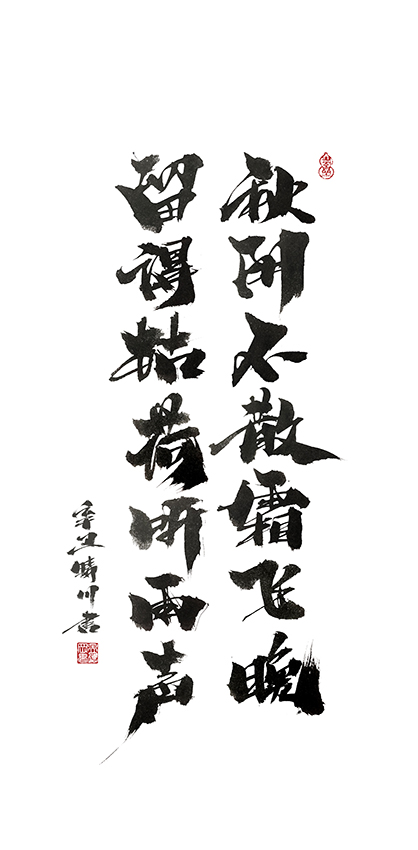 秋阴不散霜飞晚
留得枯荷听雨声
辛丑晴川书